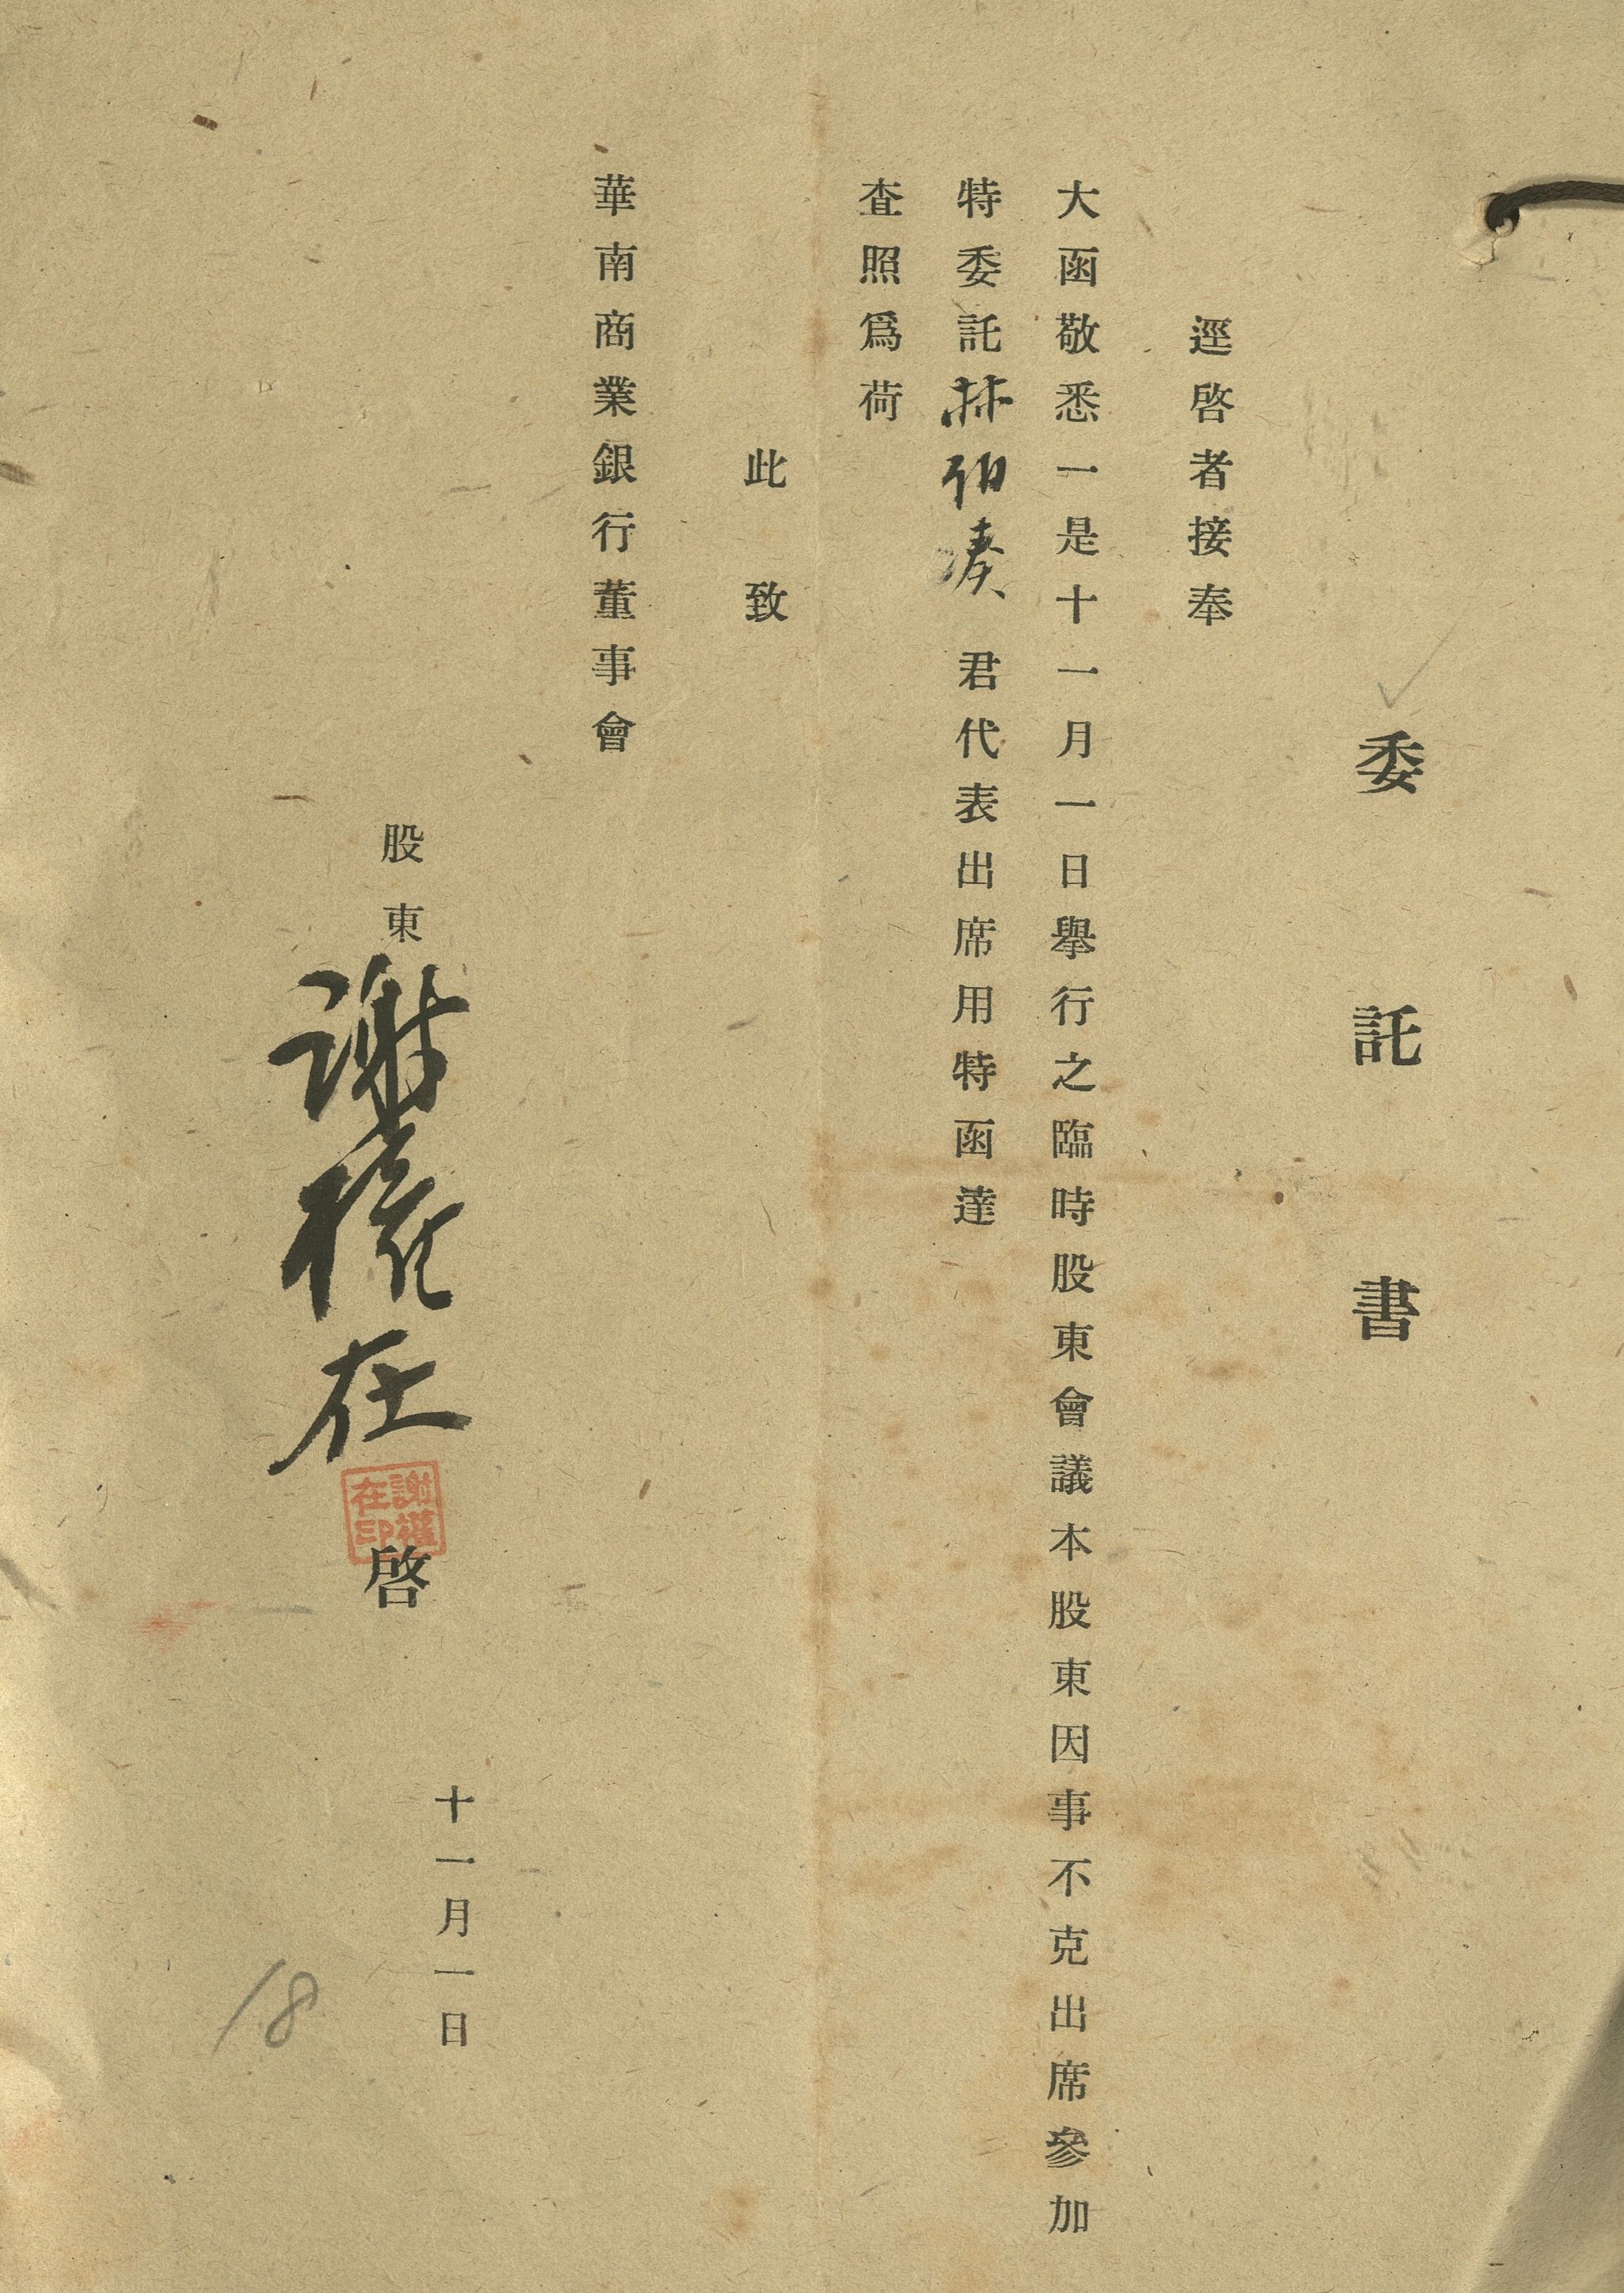 委託書
逕啓者接奉
大函敬悉一是十一月一日舉行之臨時股東會議本股東因事不克出席參加
特委託林伯湊君代表出席用特函達
查照爲荷
此致
華南商業銀行董事會
股東謝權在啓
謝權在印
十一月一日
18